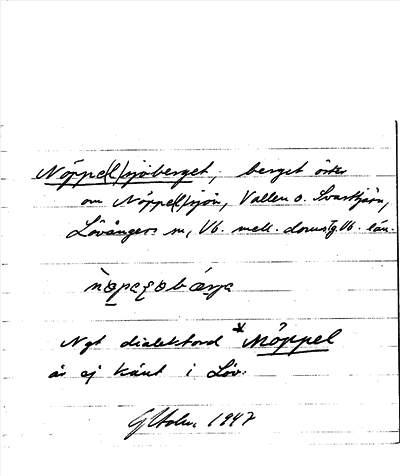 Nöppel(s)sjöberget, berget öster
om Nöppel(s)sjön, Vallen o. Svarttjärn,
Lövångers sn, Vb. mell. domsg. Vb. län.
Ngt dialektord *Nöppel
är ej känt i Löv.
GHolm, 1947